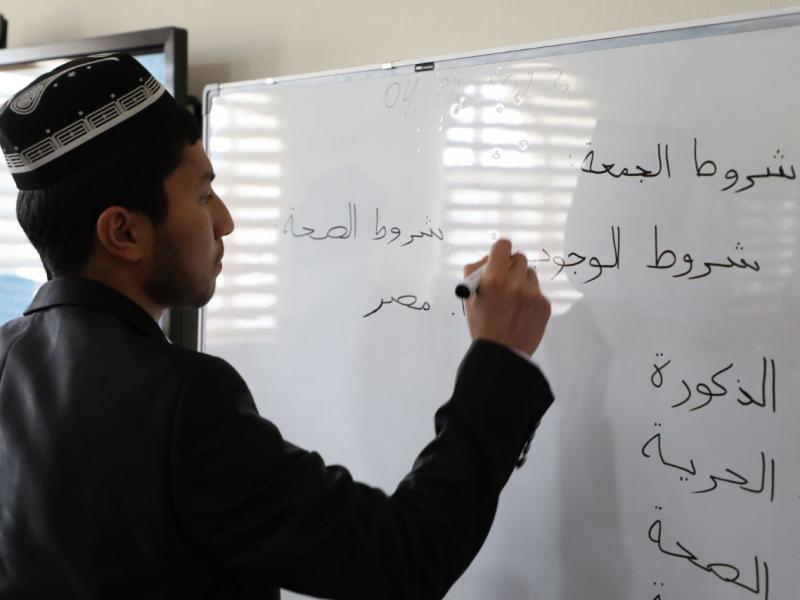 شروط الجمعة :
شروط الوجوب
الذكورة
الحرية
الصحة
شروط الصحة
١. مصر